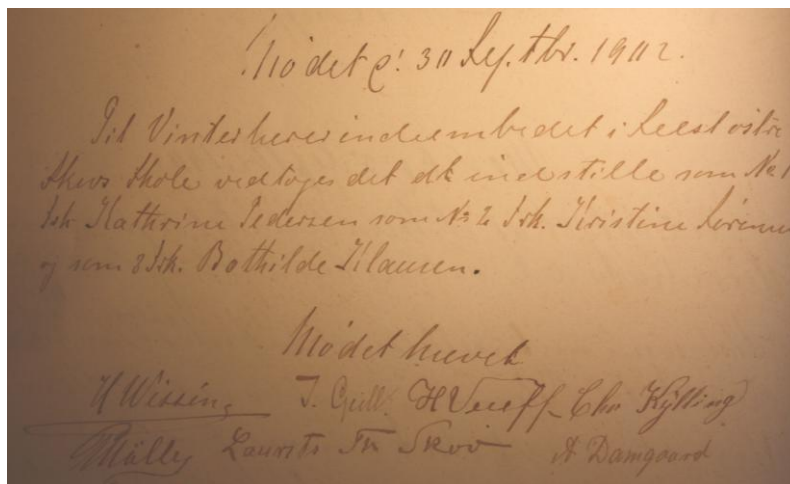 Mødet d: 30 Septbr. 1902.
Til Vinterlærerindeembedet i Seest østre
Skovs Skole vedtoges det at indstille som No 1
Frk Kathrine Pedersen som No 2 Frk. Kristine Sørense
og som 3 Frk. Bothilde Klausen.
Mødet hævet
H Wissing J. Chr Kylling
Møller Laurits Th Skov A Damgaard